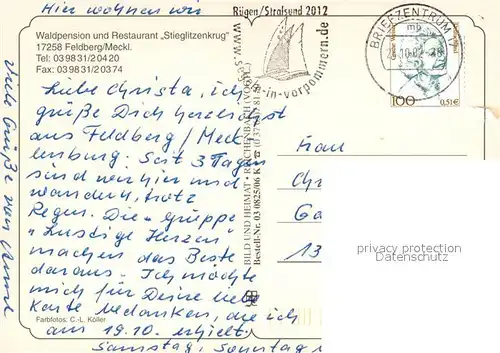 Hier wohnen wir
Waldpension und Restaurant „Stieglitzenkrug"
17258 Feldberg/Meckl.
Tel: 03 98 31/2 04 20
Fax: 03 98 31/2 03 74
Liebe Christa, ich
grüße Dich herzlichst
aus Feldberg / Meck
lenburg. Seit 3 Tagen
sind wir hier und
wandern, trotz
Regen. Die „Gruppe
"Lustige Herzen"
machen das Beste
daraus. Ich möchte
mich für Deine liebe
Karte bedanken, die ich
am 19.10. erhielt.
Samstag, Sonntag
Farbfotos: C.-L. Köller
Viele Grüße von
BILD UND HEIMAT · REICHENBACH (VOGTL)
Bestell-Nr. 03 0825/06 K
Rügen/Stralsund 2012
in-vorpommern.de
BRIEFZENTRUM 17
mb
100
0,51€
Frau
Ch
Ga
13
privacy protection